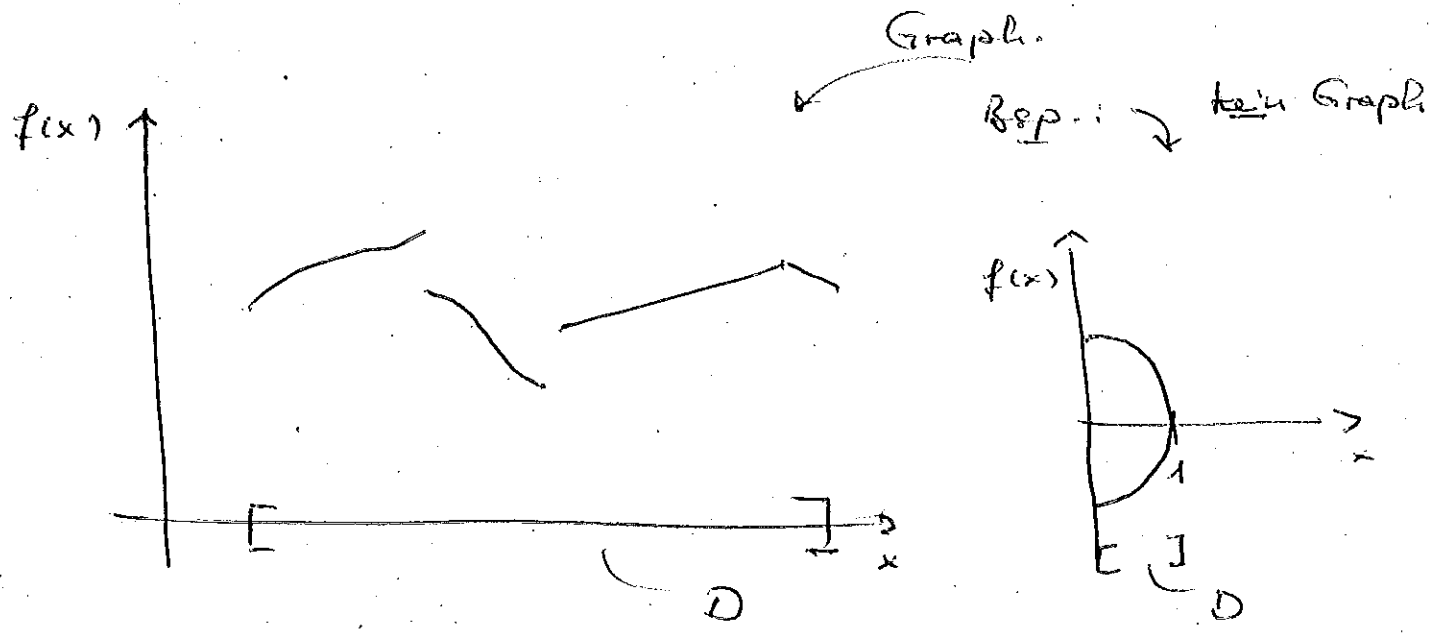 Graph.
Bsp.: kein Graph
f(x)
f(x)
1
x
[ ]
x
[ ]
D
D